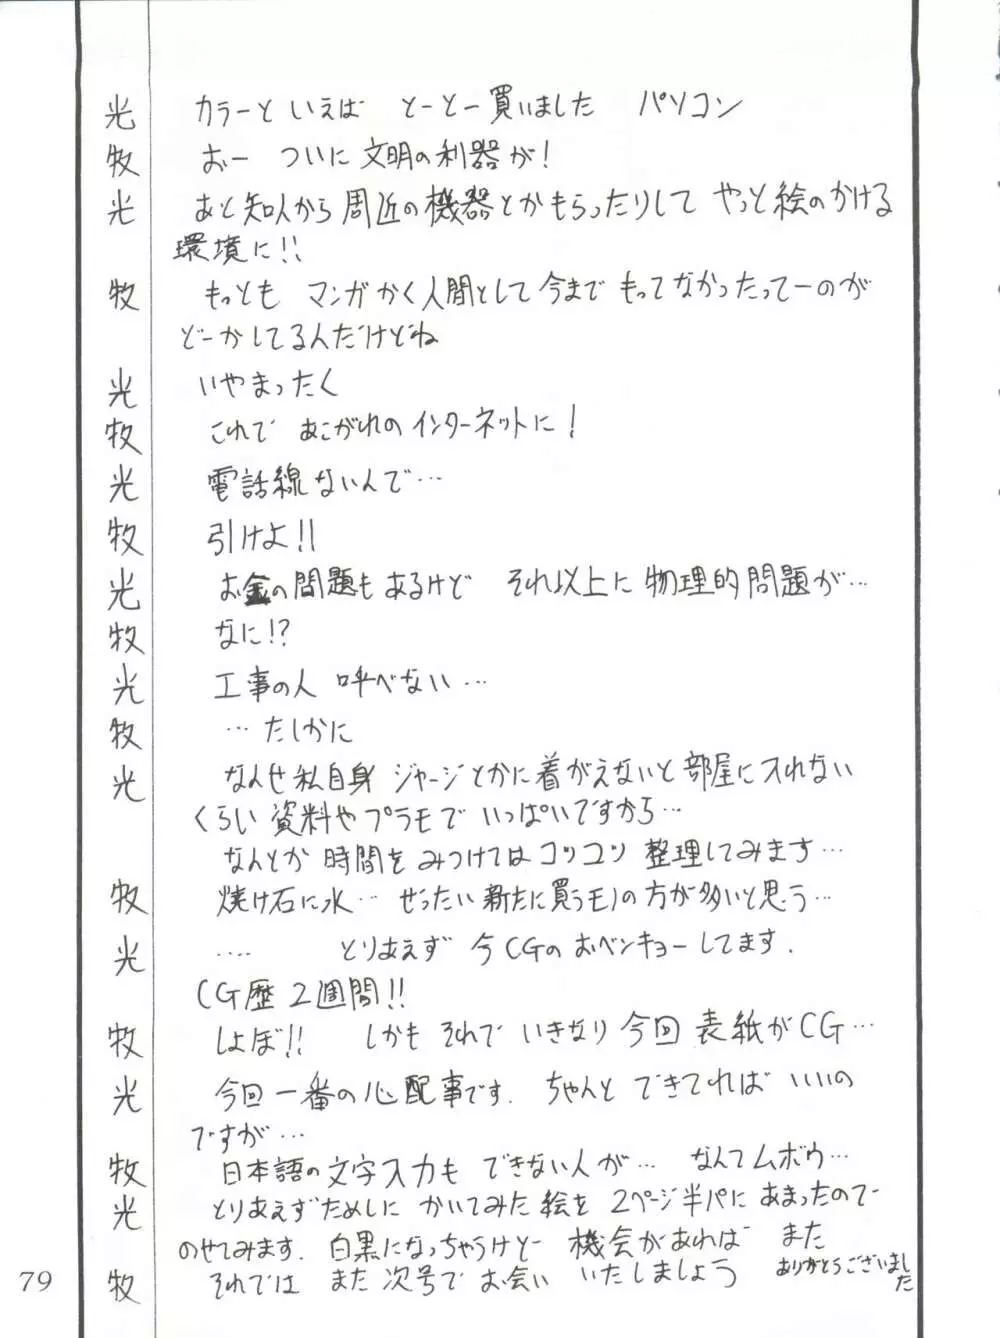 光 カラーと いえば とーとー買いました パソコン
牧 おー ついに 文明の利器が!
光 あと知人から 周辺の機器とかもらったりして やっと絵のかける
環境に!!
牧 もっとも マンガかく人間として今まで もってなかったってーのが
どーかしてるんだけどね
光 いやまったく
牧 これで あこがれのインターネットに!
光 電話線ないんで…
牧 引けよ!!
光 お金の問題もあるけど それ以上に物理的問題が…
牧 なに!?
光 工事の人 呼べない…
牧 …たしかに
光 なんせ私自身 ジャージとかに着がえないと部屋に入れない
くらい 資料やプラモで いっぱいですから…
なんとか 時間をみつけてはコツコツ 整理してみます…
牧 焼け石に水… ぜったい新たに買うモノの方が多いと思う…
光 …. とりあえず 今CGのおベンキョーしてます.
CG歴 2週間!!
牧 しょぼ!! しかも それで いきなり 今回 表紙がCG…
光 今回一番の心配事です. ちゃんと できてれば いいの
ですが…
牧 日本語の文字入力も できない人が… なんてムボウ…
光 とりあえずためしに かいてみた絵を 2ページ半パにあまったので
のせてみます. 白黒になっちゃうけどー 機会があれば また
79 牧 それでは また次号でお会い いたしましょう ありがとうございまし
た